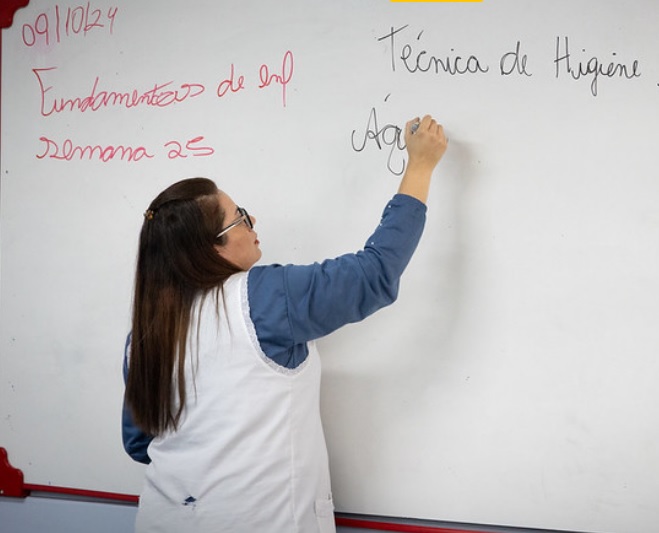 09/10/24
Fundamentos de enf
Semana 25
Técnica de Higiene
Águ